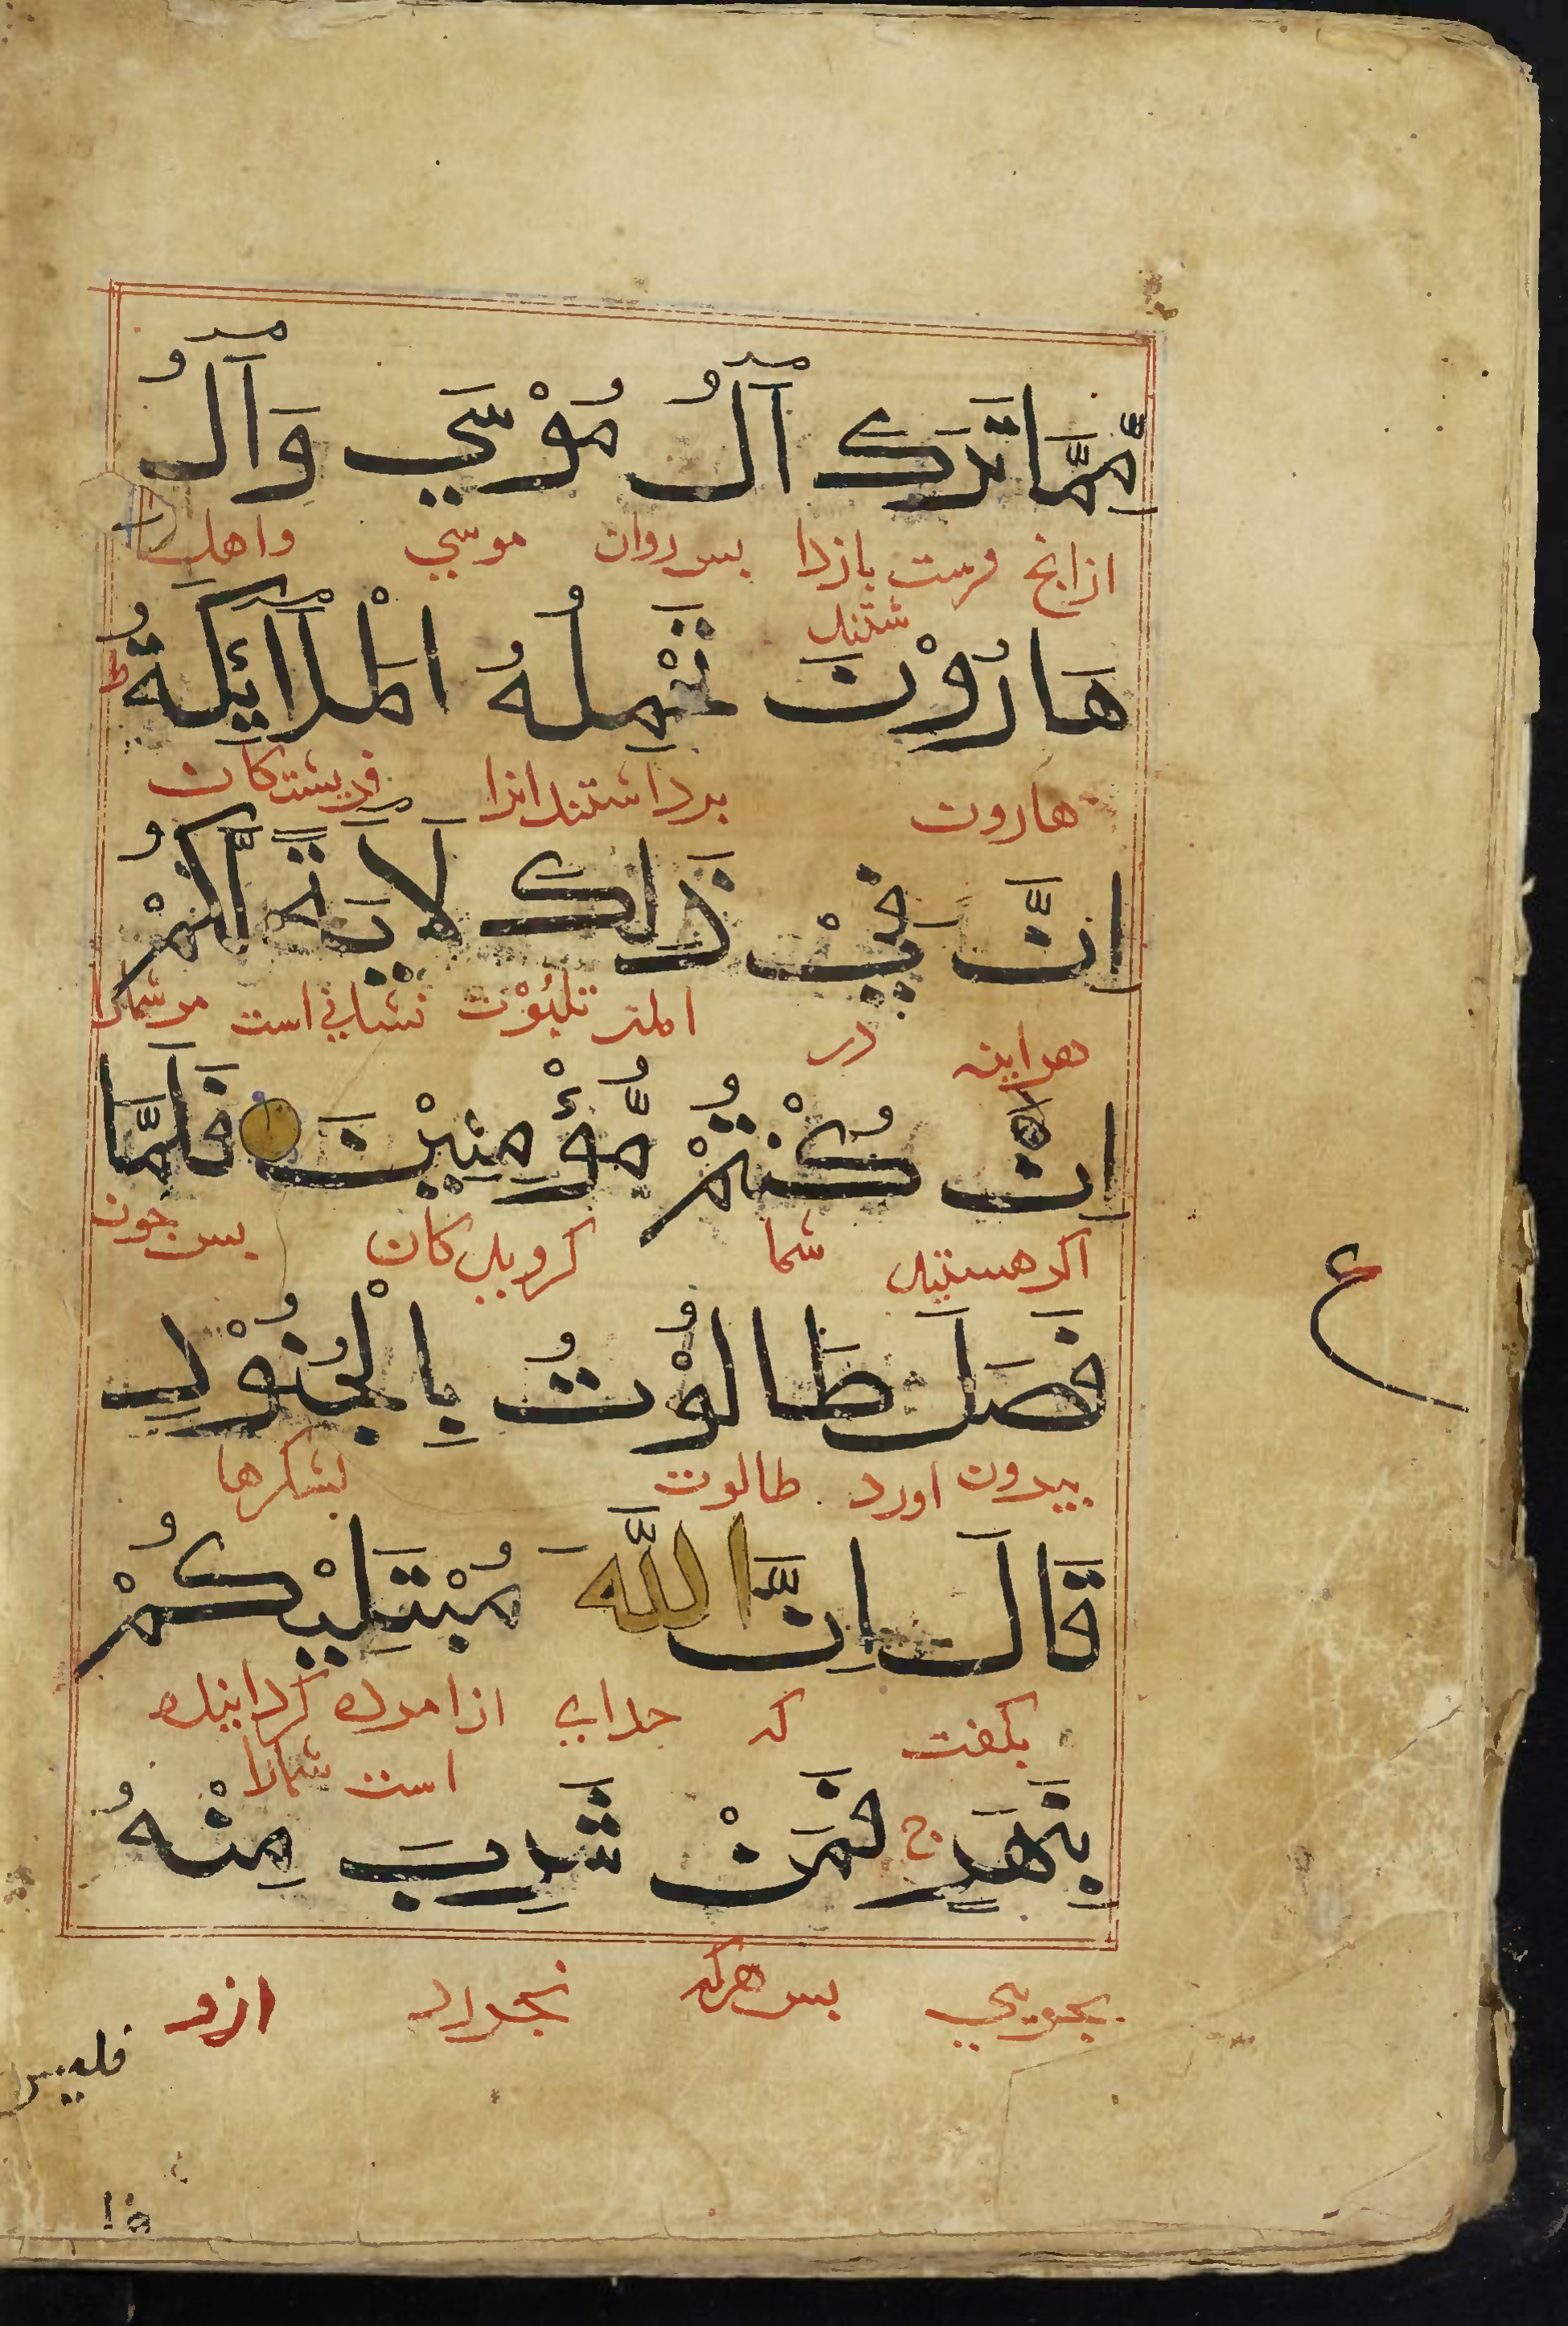 مِّمَّا تَرَكَ آلُ مُوْسَي وَآلُ
ازانج بازدا پس روان موسي واهل
شتند
هَارُوْنَ تَحْمِلُهُ الْمَلَآئِكَةُ ط
هارون برداشتند انرا فریشتکان
اِنَّ فِيْ ذَلِكَ لَآيَةً لَّكُمْ
هراینه در نشانی است مرشمارا
اِنْ كُنْتُمْ مُّؤْمِنِيْنَ فَلَمَّا
اکر هستید شما کرویدکان پس چون
ع
فَصَلَ طَالُوْتُ بِالْجُنُوْدِ
بیرون اورد طالوت لشکرها
قَالَ اِنَّ اللَّهَ مُبْتَلِيْكُمْ
بکفت که خدای ازاموده کردانیده
است شمارا
بِنَهَرٍ ج فَمَنْ شَرِبَ مِنْهُ
بجویي پس هرکه بخورد ازو
فليس